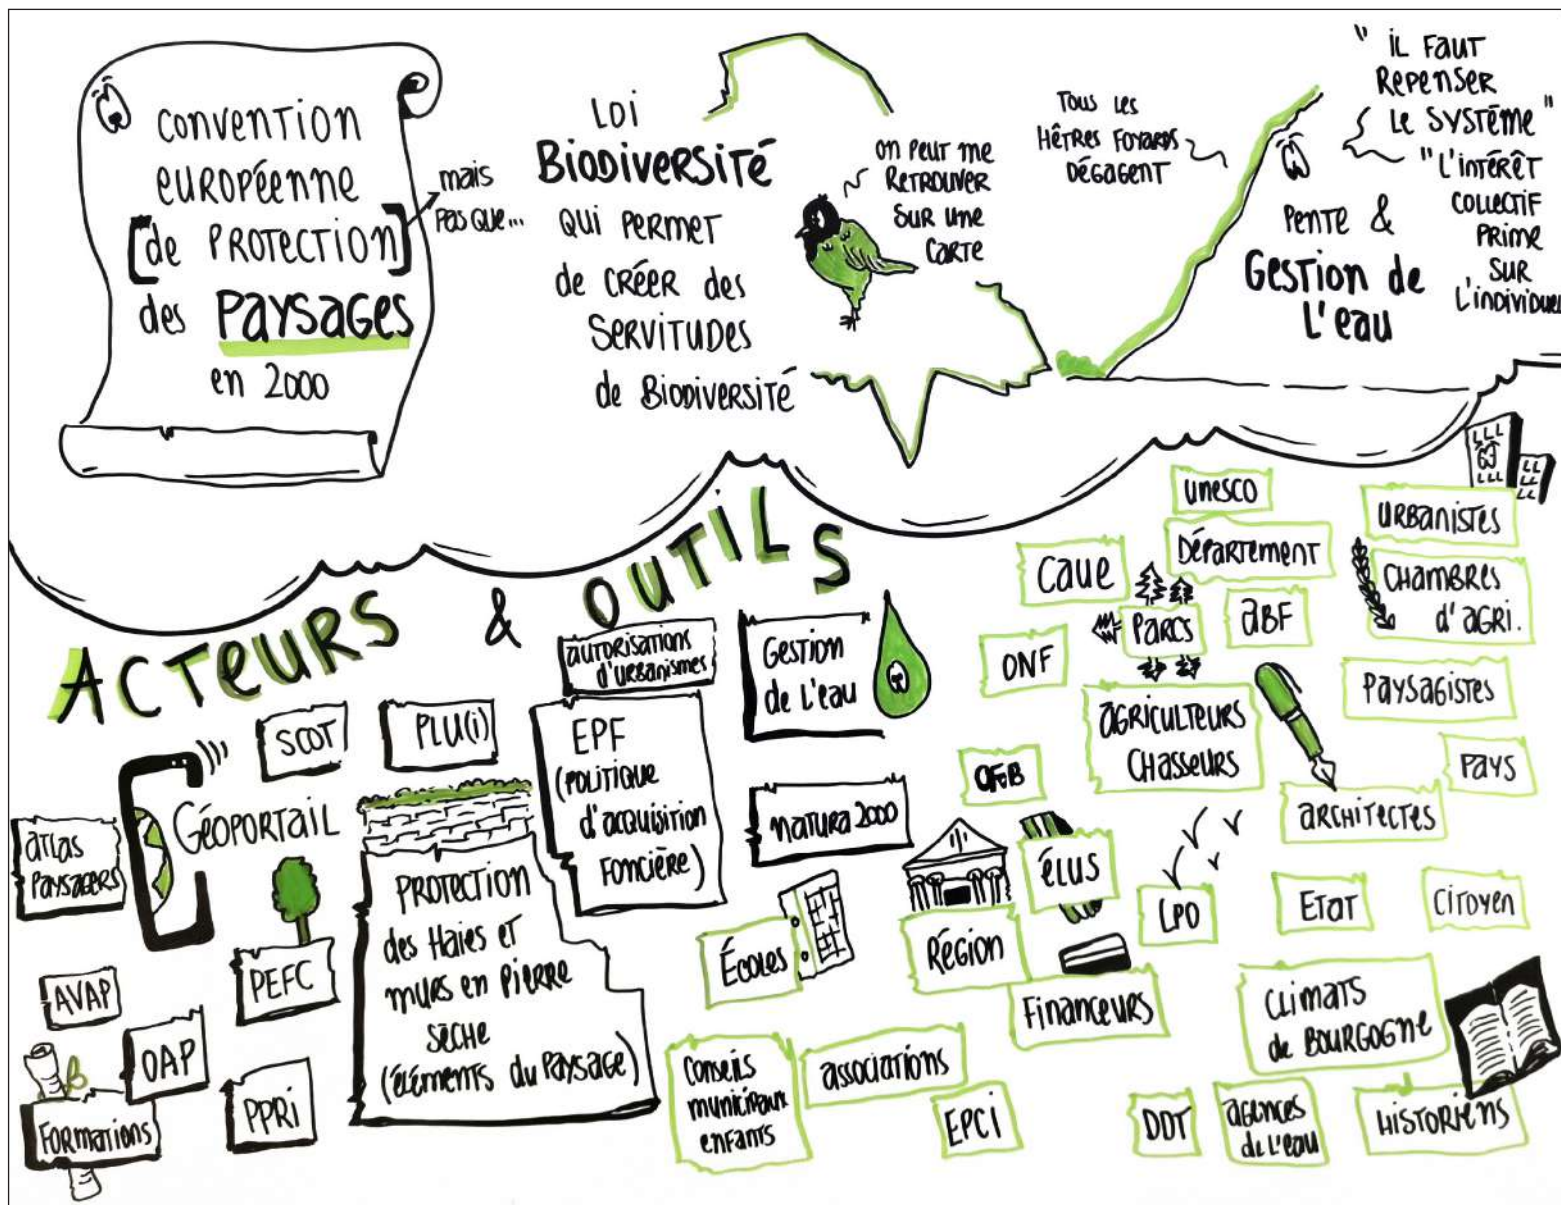 Convention
européenne
[de PROTECTION]
des PAYSAGES
en 2000
mais
pas que...
Loi
Biodiversité
qui permet
de créer des
SERVITUDES
de Biodiversité
on peut me
retrouver
sur une
carte
Tous les
Hêtres Foyards
dégagent
Pente &
Gestion de
l'eau
" il faut
repenser
le système "
"L'intérêt
collectif
prime
sur
l'individuel
ACTEURS & OUTILS
autorisations
d'urbanismes
Gestion
de l'eau
SCOT
PLU(i)
EPF
(politique
d'acquisition
Foncière)
Géoportail
atlas
paysagers
natura 2000
PROTECTION
des Haies et
murs en pierre
sèche
(éléments du paysage)
PEFC
AVAP
OAP
PPRi
Formations
unesco
urbanistes
Caue
Département
Chambres
d'agri.
Parcs
aBF
ONF
agriculteurs
Chasseurs
paysagistes
OFB
pays
architectes
élus
Écoles
Région
LPO
Etat
Citoyen
Financeurs
Climats
de Bourgogne
Conseils
municipaux
enfants
associations
EPCi
DDT
agences
de l'eau
Historiens